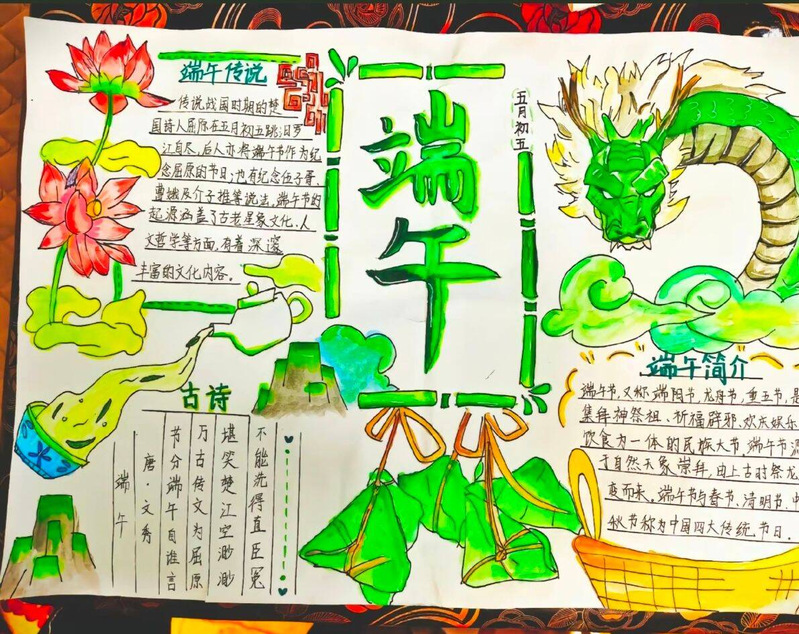 端午传说
传说战国时期的楚
国诗人屈原在五月初五跳汨罗
江自尽,后人亦将端午节作为纪
念屈原的节日;也有纪念伍子胥、
曹娥及介子推等说法,端午节的
起源涵盖了古老星象文化、人
文哲学等方面,有着深邃
丰富的文化内容。
端午
五月初五
古诗
端午
唐·文秀
节分端午自谁言
万古传文为屈原
堪笑楚江空渺渺
不能洗得直臣冤
端午简介
端午节,又称端阳节,龙舟节,重五节,是
集拜神祭祖、祈福辟邪、欢庆娱乐
饮食为一体的民族大节,端午节源
于自然天象崇拜,由上古时祭龙
变而来,端午节与春节、清明节、中
秋节称为中国四大传统节日.